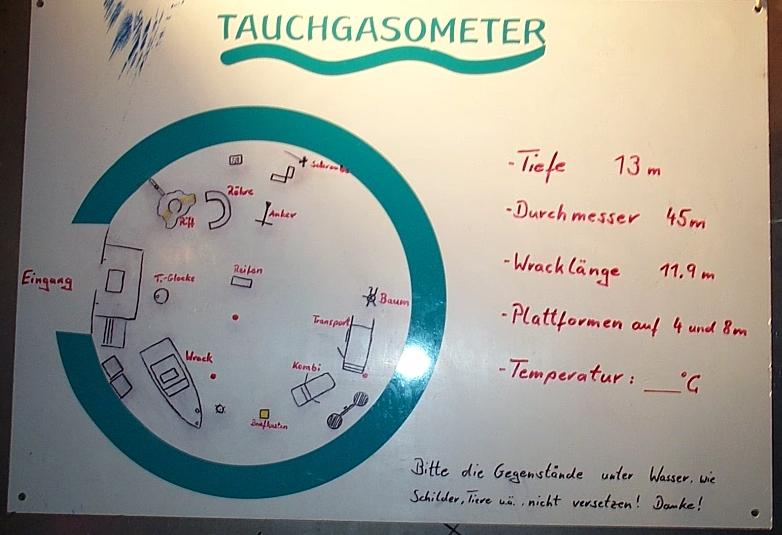 TAUCHGASOMETER
Schraube
Röhre
Riff
Anker
Eingang
T.-Glocke
Reifen
Baum
Transport
Wrack
Kombi
Briefkasten
-Tiefe 13 m
-Durchmesser 45m
-Wracklänge 11.9 m
-Plattformen auf 4 und 8m
-Temperatur: ___°C
Bitte die Gegenstände unter Wasser, wie
Schilder, Tiere u.ä., nicht versetzen! Danke!